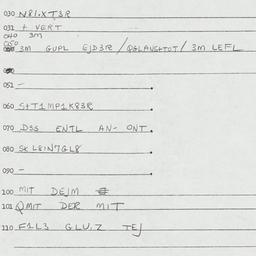 030 N8I.XT3R
031 + VERT
040 3M
050 3M GUPL EJD3R / QGLAVSTOT / 3M LEFL
051 -
060 S+T1MP1K83R
070 D3S ENTL AN- ONT.
080 SKL8IN7GL8
090 -
100 MIT DEJM
101 QMIT DER MIT
110 F1L3 GLU.Z TEJ